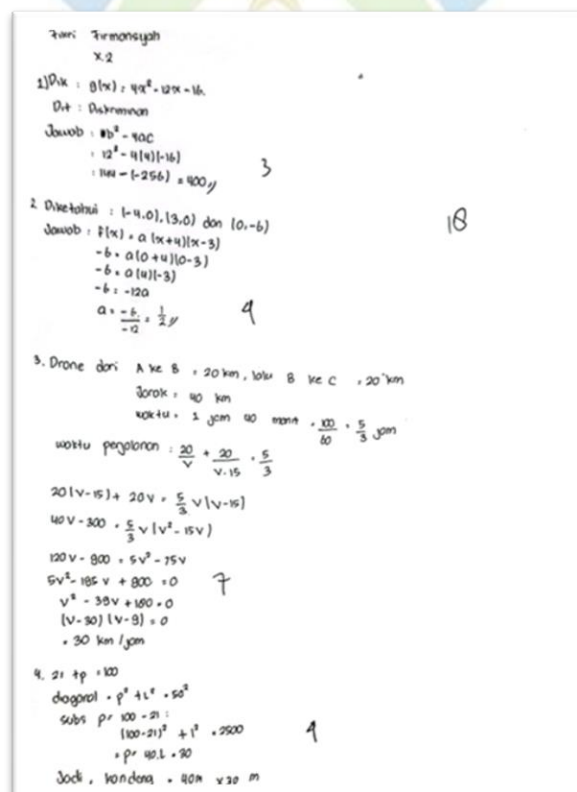 Fikri Firmansyah
X.2
1) Dik : g(x) = 4x² - 12x - 16.
Dit : Diskriminan
Jawab : b² - 4ac
: 12² - 4(4)(-16)
: 144 - (-256) = 400 //
3
2 Diketahui : (-4.0), (3,0) dan (0,-6)
18
Jawab : F(x) = a (x+4)(x-3)
-6 = a(0+4)(0-3)
-6 = a(4)(-3)
-6 = -12a
a = -6/-12 = 1/2 //
4
3. Drone dari A ke B = 20 km, lalu B ke C = 20 km
Jarak = 40 km
waktu = 1 jam 40 menit = 100/60 = 5/3 jam
waktu perjalanan : 20/v + 20/v-15 = 5/3
20(v-15) + 20v = 5/3 v(v-15)
40v - 300 = 5/3 v(v² - 15v)
120v - 900 = 5v² - 75v
5v² - 195v + 900 = 0
7
v² - 39v + 180 = 0
(v-30) (v-9) = 0
= 30 km/jam
4. 2l + p = 100
diagonal = p² + L² = 50²
subs p = 100 - 2l :
(100-2l)² + l² = 2500
4
= p = 40. L = 30
Jadi, = 40m x 30 m